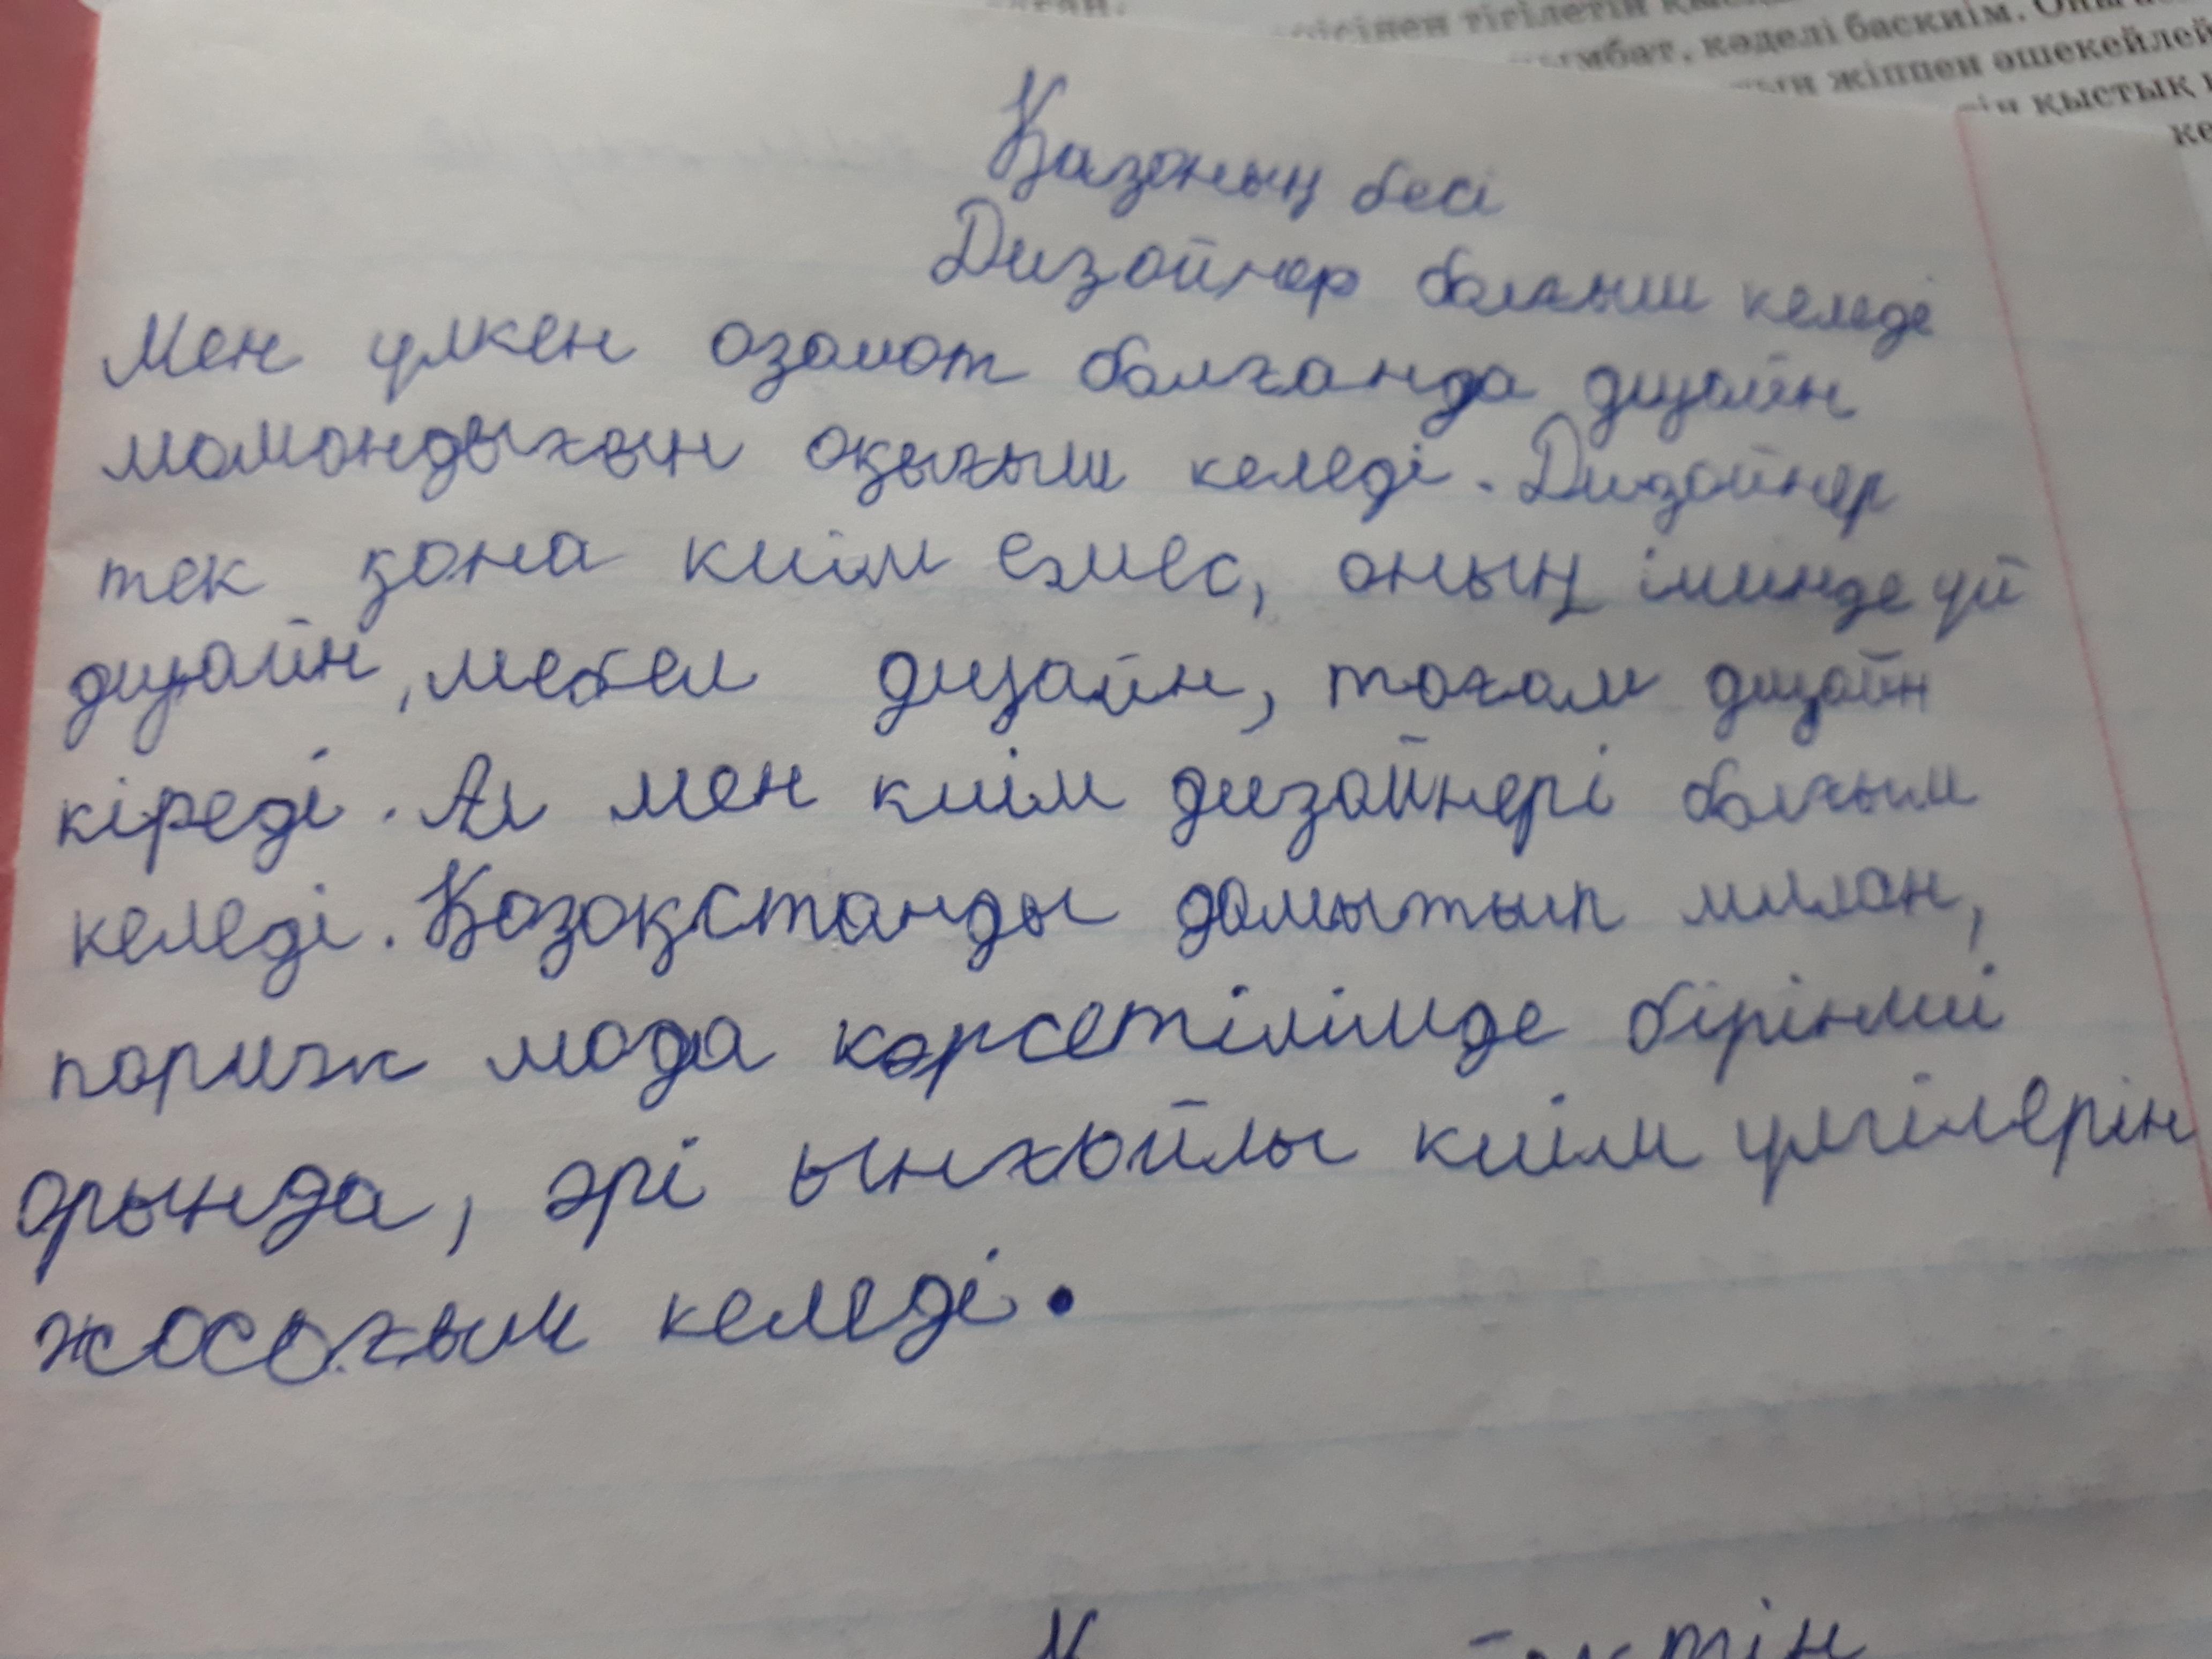 рісінен тігілетін
қымбат, кәделі баскиім. Оны
жіппен әшекейлей
қыстық
ке
Қазанның бесі
Дизайнер болғым келеді
Мен үлкен азамат болғанда дизайн
мамандығын оқығым келеді. Дизайнер
тек қана киім емес, оның ішінде үй
дизайн, мебел дизайн, тағам дизайн
кіреді. Ал мен киім дизайнері болғым
келеді. Қазақстанды дамытып милан,
париж мода көрсетілімде бірінші
орында, әрі ыңғайлы киім үлгілерін
жасағым келеді.